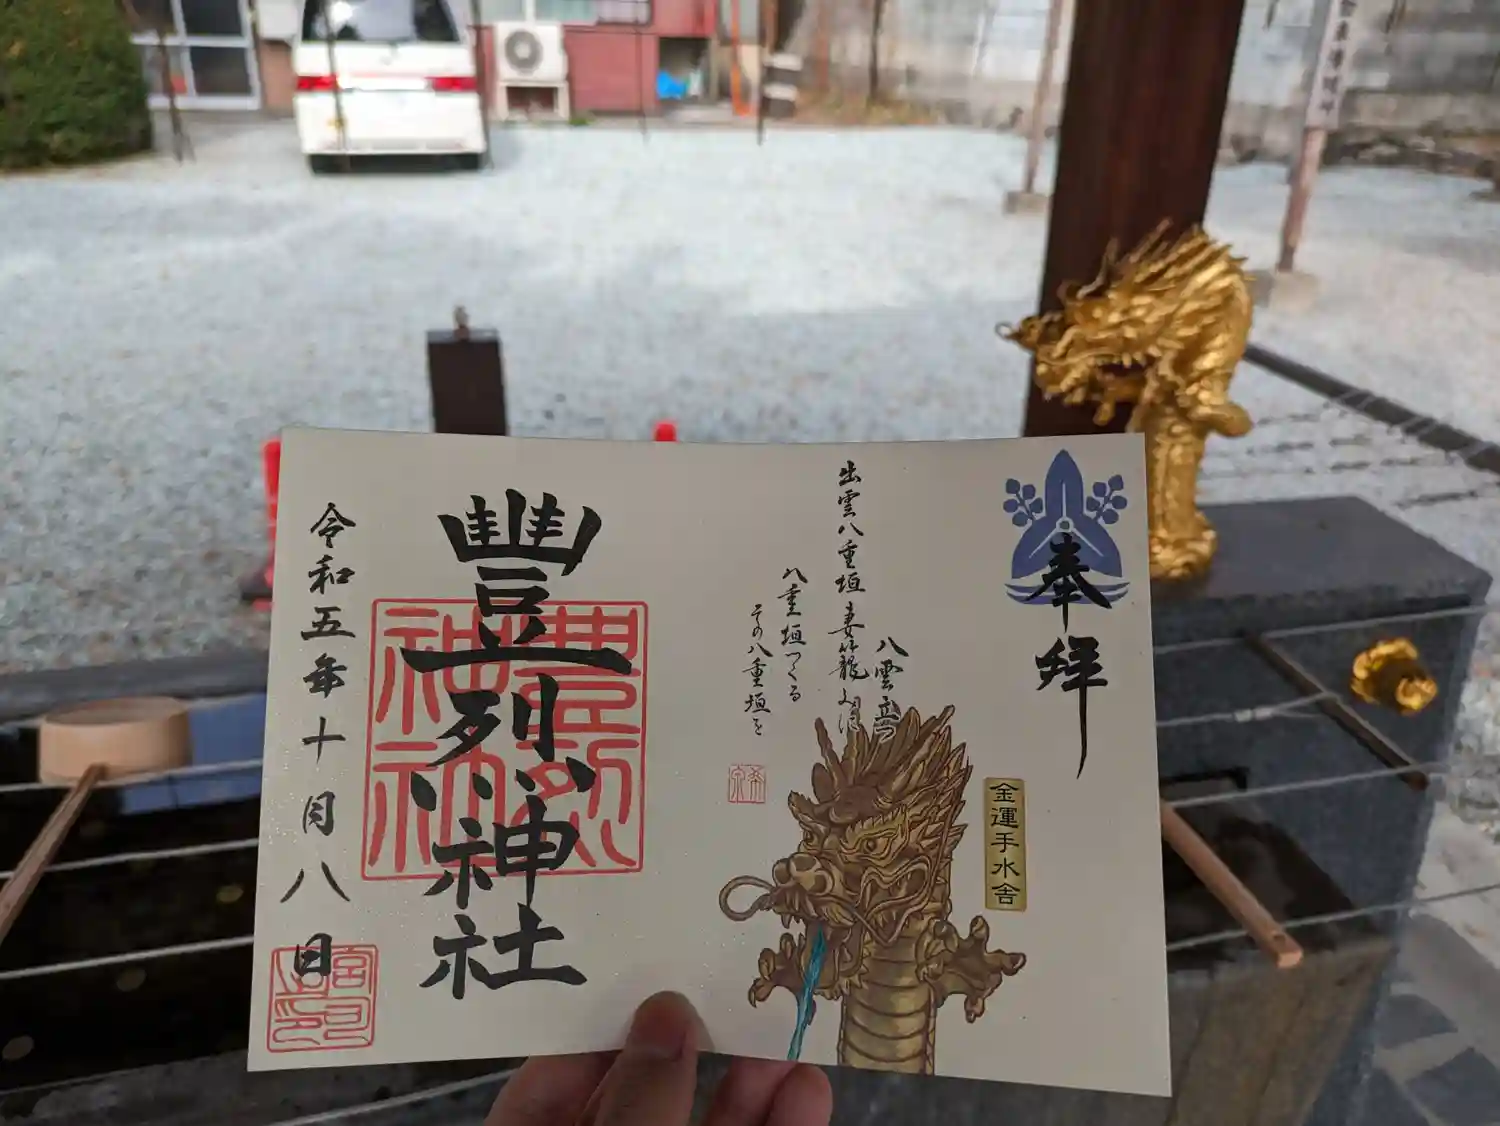 奉拝
八雲立つ
出雲八重垣妻籠みに
八重垣つくる
その八重垣を
金運手水舎
豊烈神社
令和五年十月八日